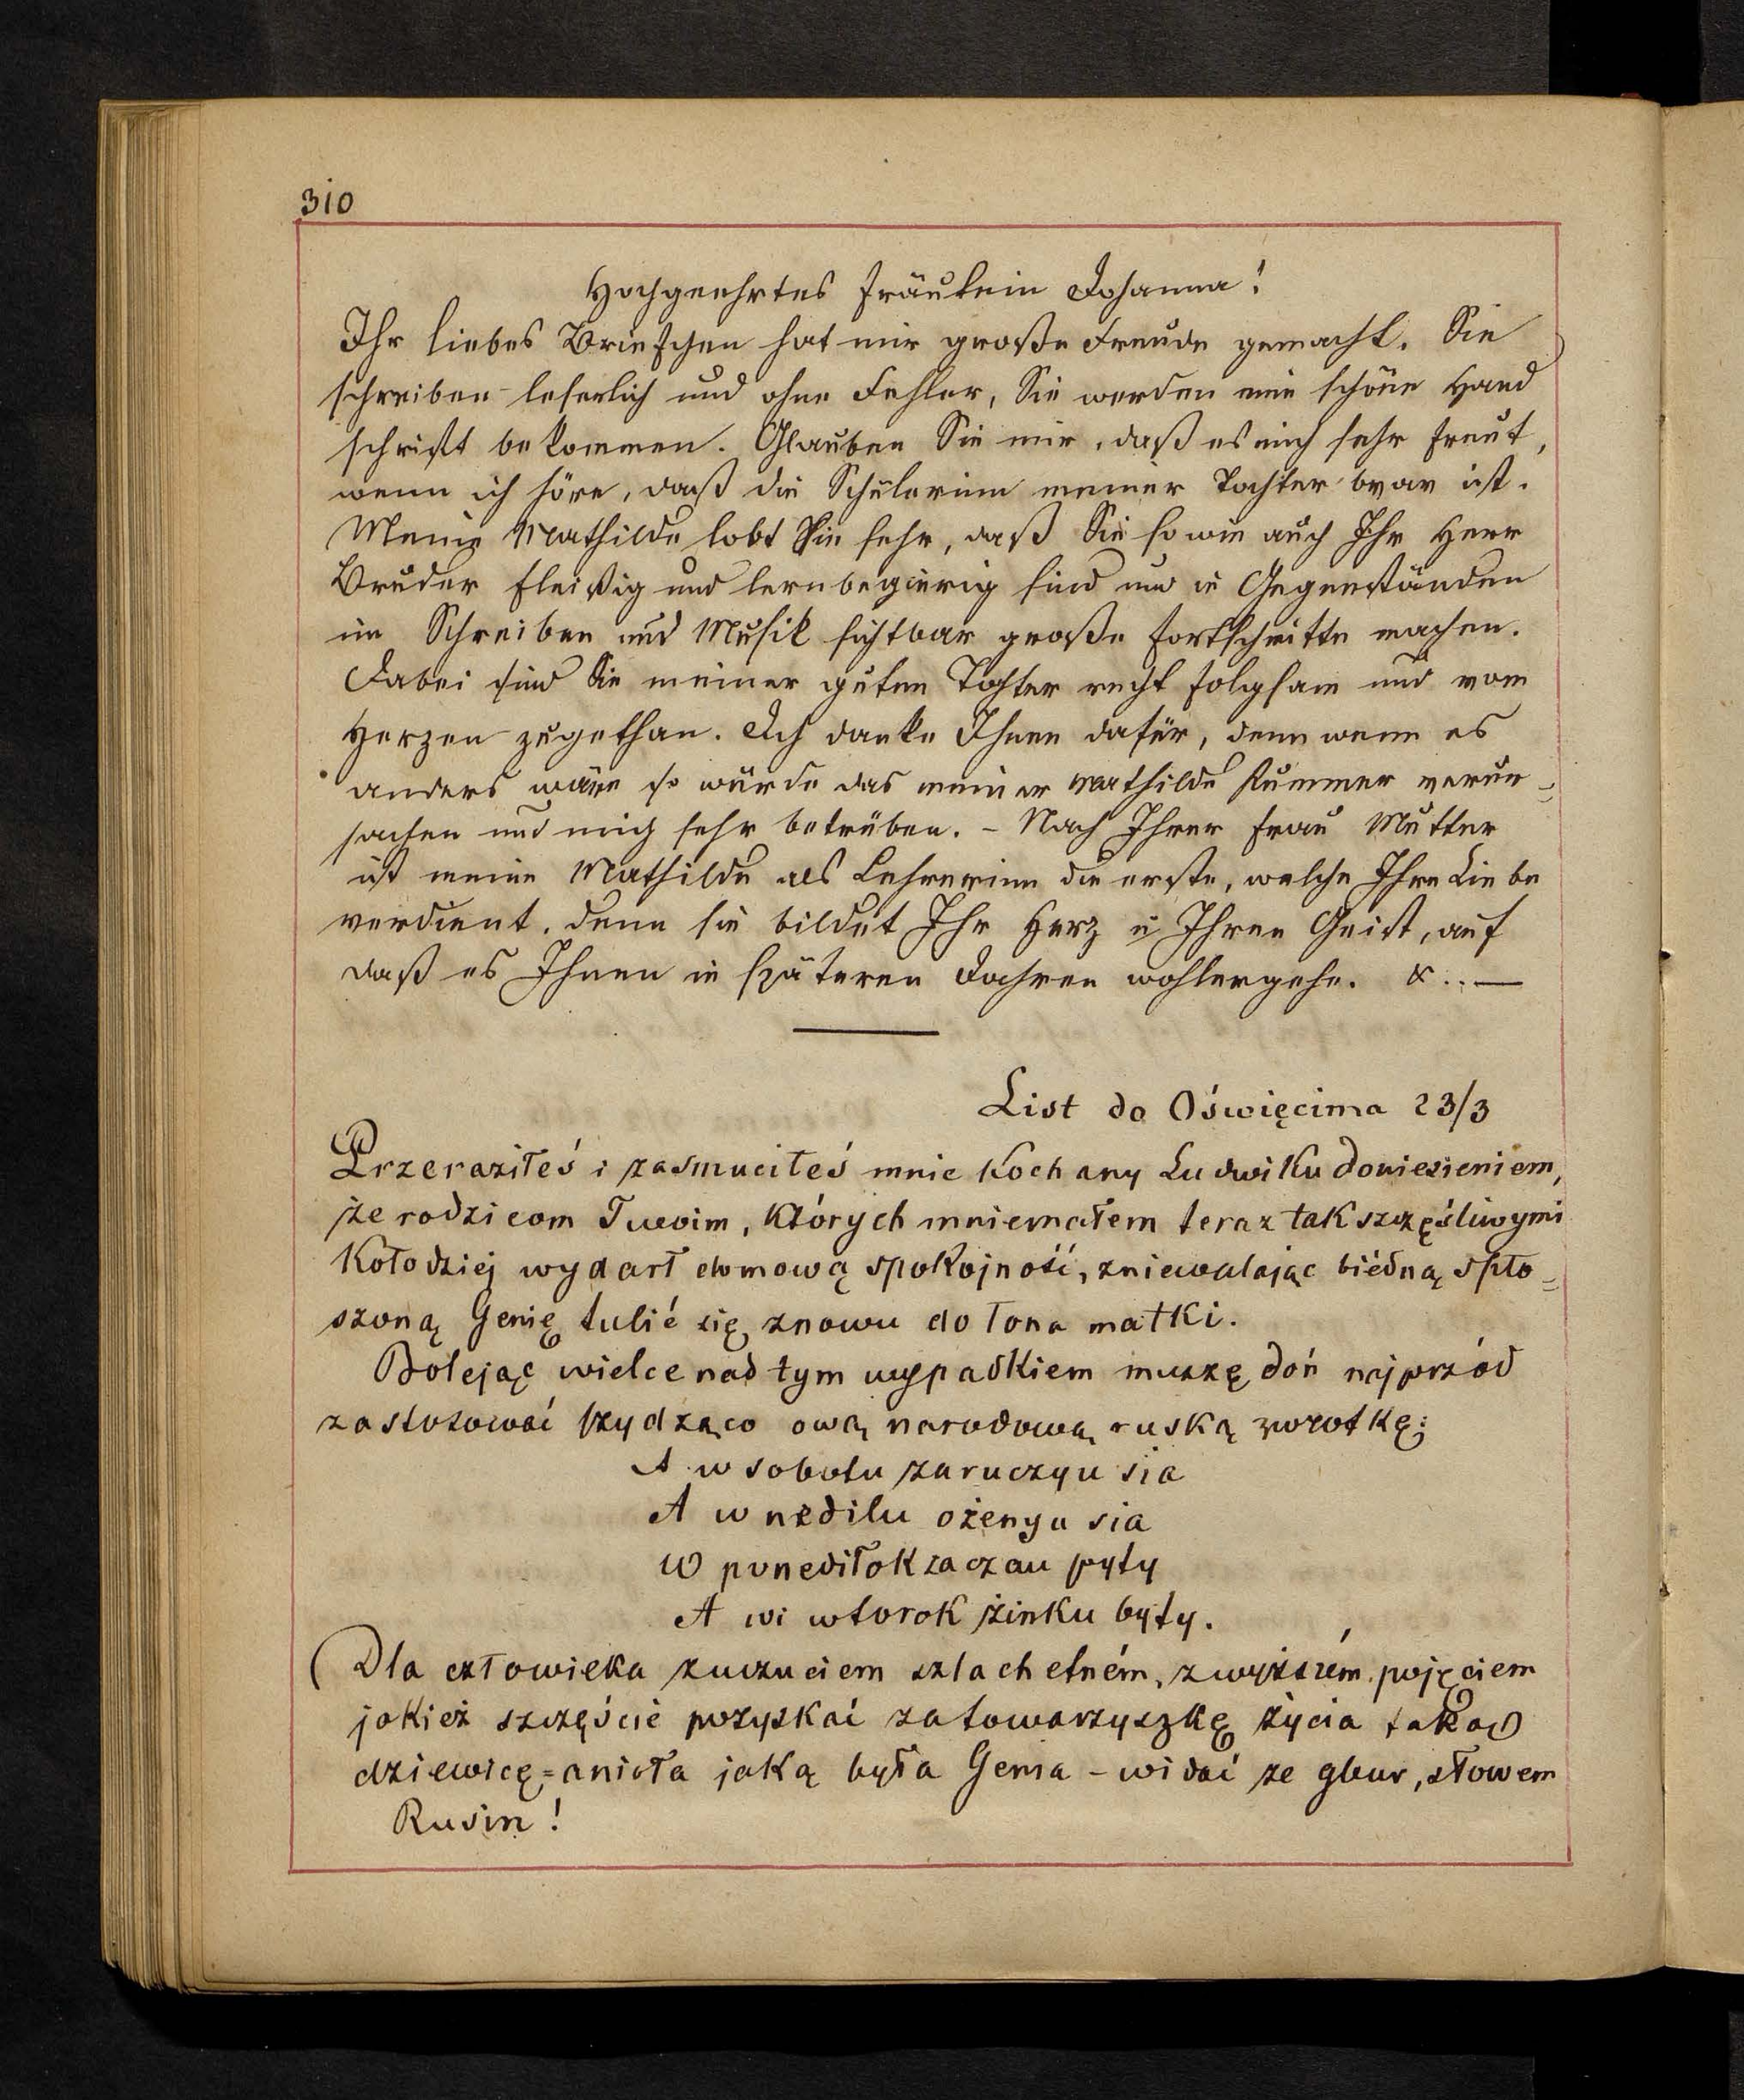 310
Hochgeehrtes Fräulein Johanna!
Ihr liebes Briefchen hat mir große Freude gemacht. Sie
schreiben leserlich und ohne Fehler, Sie werden eine schöne Hand
schrift bekommen. Glauben Sie mir, daß es mich sehr freut,
wenn ich höre, daß die Schülerinn meiner Tochter brav ist.
Meine Mathilde lobt Sie sehr, daß Sie so wie auch Ihr Herr
Bruder fleißig und lernbegierig sind und in Gegenständen
im Schreiben und Musik sichtbar große Fortschritte machen.
Dabei sind Sie meiner guten Tochter recht folgsam und vom
Herzen zugethan. Ich danke Ihnen dafür, denn wenn es
anders wäre so würde das meiner Mathilde Kummer verur=
sachen und mich sehr betrüben. – Nach Ihrer Frau Mutter
ist meine Mathilde als Lehrerinn die erste, welche Ihre Liebe
verdient, denn sie bildet Ihr Herz u Ihren Geist, auf
daß es Ihnen in späteren Jahren wohlergehe. & .. —
List do Oświęcima 23/3
Przeraziłeś i zasmuciłeś mnie Kochany Ludwiku doniesieniem,
że rodzicom Twoim, których mniemałem teraz tak szczęśliwymi
Kołodziej wydarł domową spokojność, zniewalając biédną spło=
szoną Genię tulić się znowu do łona matki.
Bolejąc wielce nad tym wypadkiem muszę doń najprzód
zastosować szydząco ową narodową ruską zwrotkę:
A w sobotu zaruczyu sia
A w nedilu ożenyu sia
W ponediłok zaczau pyty
A wi wtorok żinku byty.
(Dla człowieka z uczuciem szlachetném, z wyższém pojęciem
jakież szczęście pozyskać za towarzyszkę życia taką
dziewicę=anioła jaką była Genia – widać że gbur, słowem
Rusin!